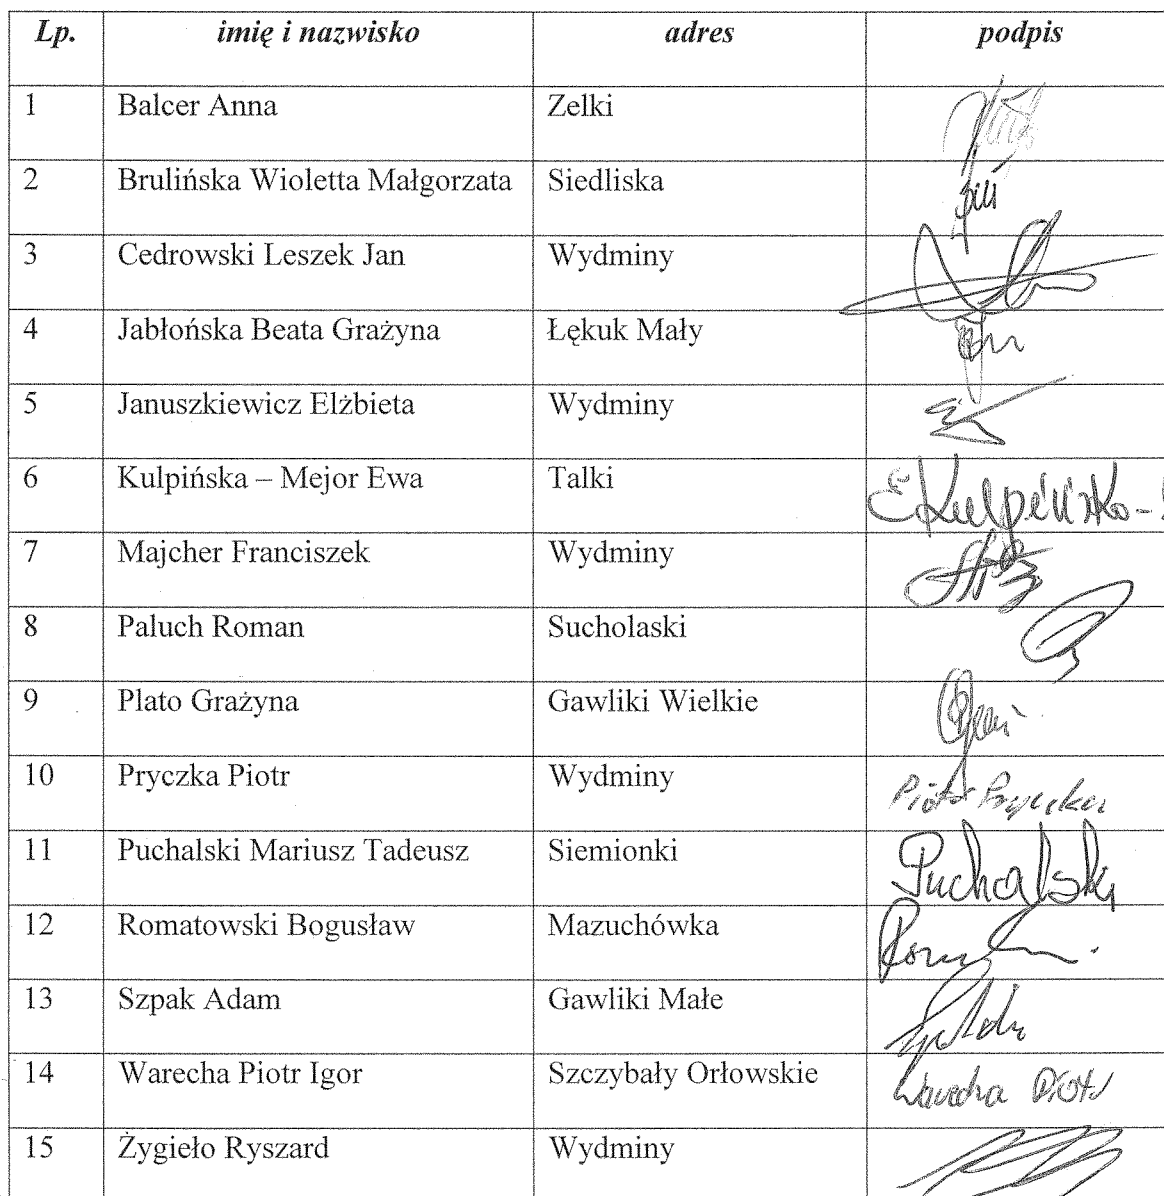 Lp. imię i nazwisko adres podpis
1 Balcer Anna Zelki
2 Brulińska Wioletta Małgorzata Siedliska
3 Cedrowski Leszek Jan Wydminy
4 Jabłońska Beata Grażyna Łękuk Mały
5 Januszkiewicz Elżbieta Wydminy
6 Kulpińska – Mejor Ewa Talki E Kulpińska -
7 Majcher Franciszek Wydminy
8 Paluch Roman Sucholaski
9 Plato Grażyna Gawliki Wielkie
10 Pryczka Piotr Wydminy Piotr Pryczka
11 Puchalski Mariusz Tadeusz Siemionki Puchalski
12 Romatowski Bogusław Mazuchówka
13 Szpak Adam Gawliki Małe
14 Warecha Piotr Igor Szczybały Orłowskie Warecha Piotr
15 Żygieło Ryszard Wydminy